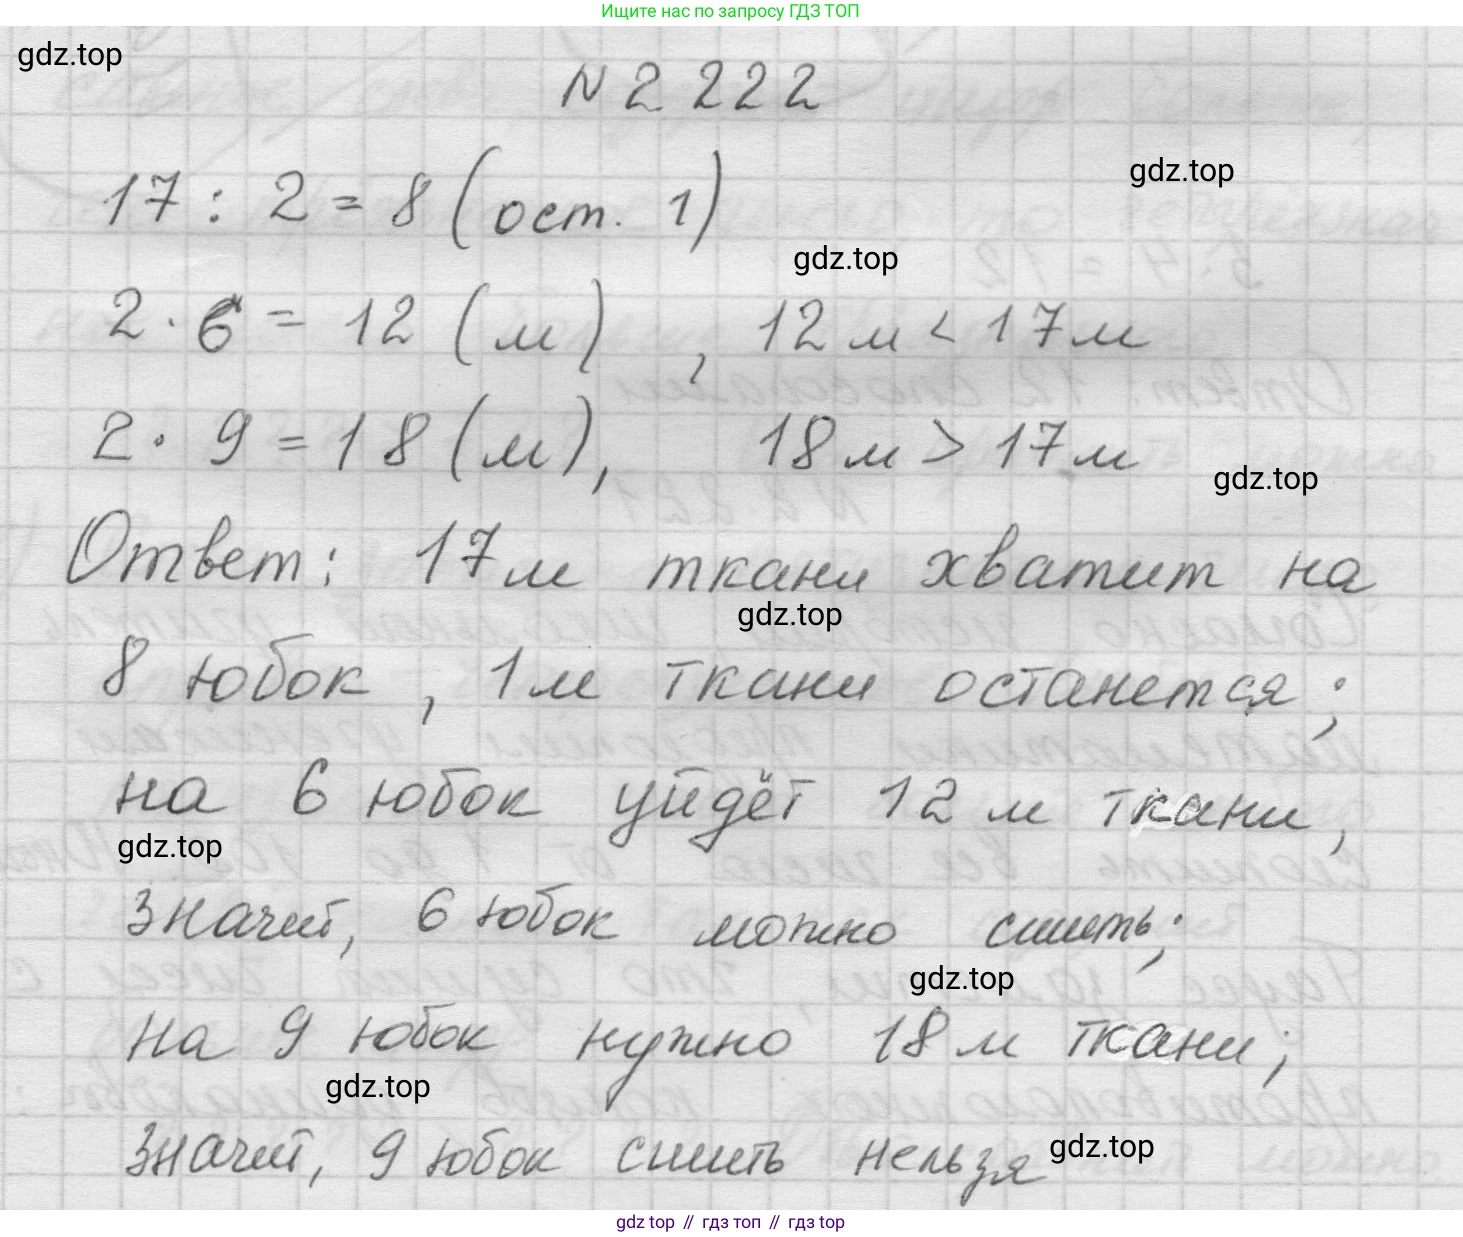 Ищите нас по запросу ГДЗ ТОП
gdz.top
N 2.222
gdz.top
17 : 2 = 8 (ост. 1)
gdz.top
2 · 6 = 12 (м) , 12 м < 17 м
2 · 9 = 18 (м), 18 м > 17 м
gdz.top
Ответ: 17 м ткани хватит на
gdz.top
8 юбок , 1 м ткани останется;
на 6 юбок уйдёт 12 м ткани,
gdz.top
значит, 6 юбок можно сшить;
gdz.top
на 9 юбок нужно 18 м ткани;
gdz.top
значит, 9 юбок сшить нельзя
gdz.top
gdz top // гдз топ // гдз top